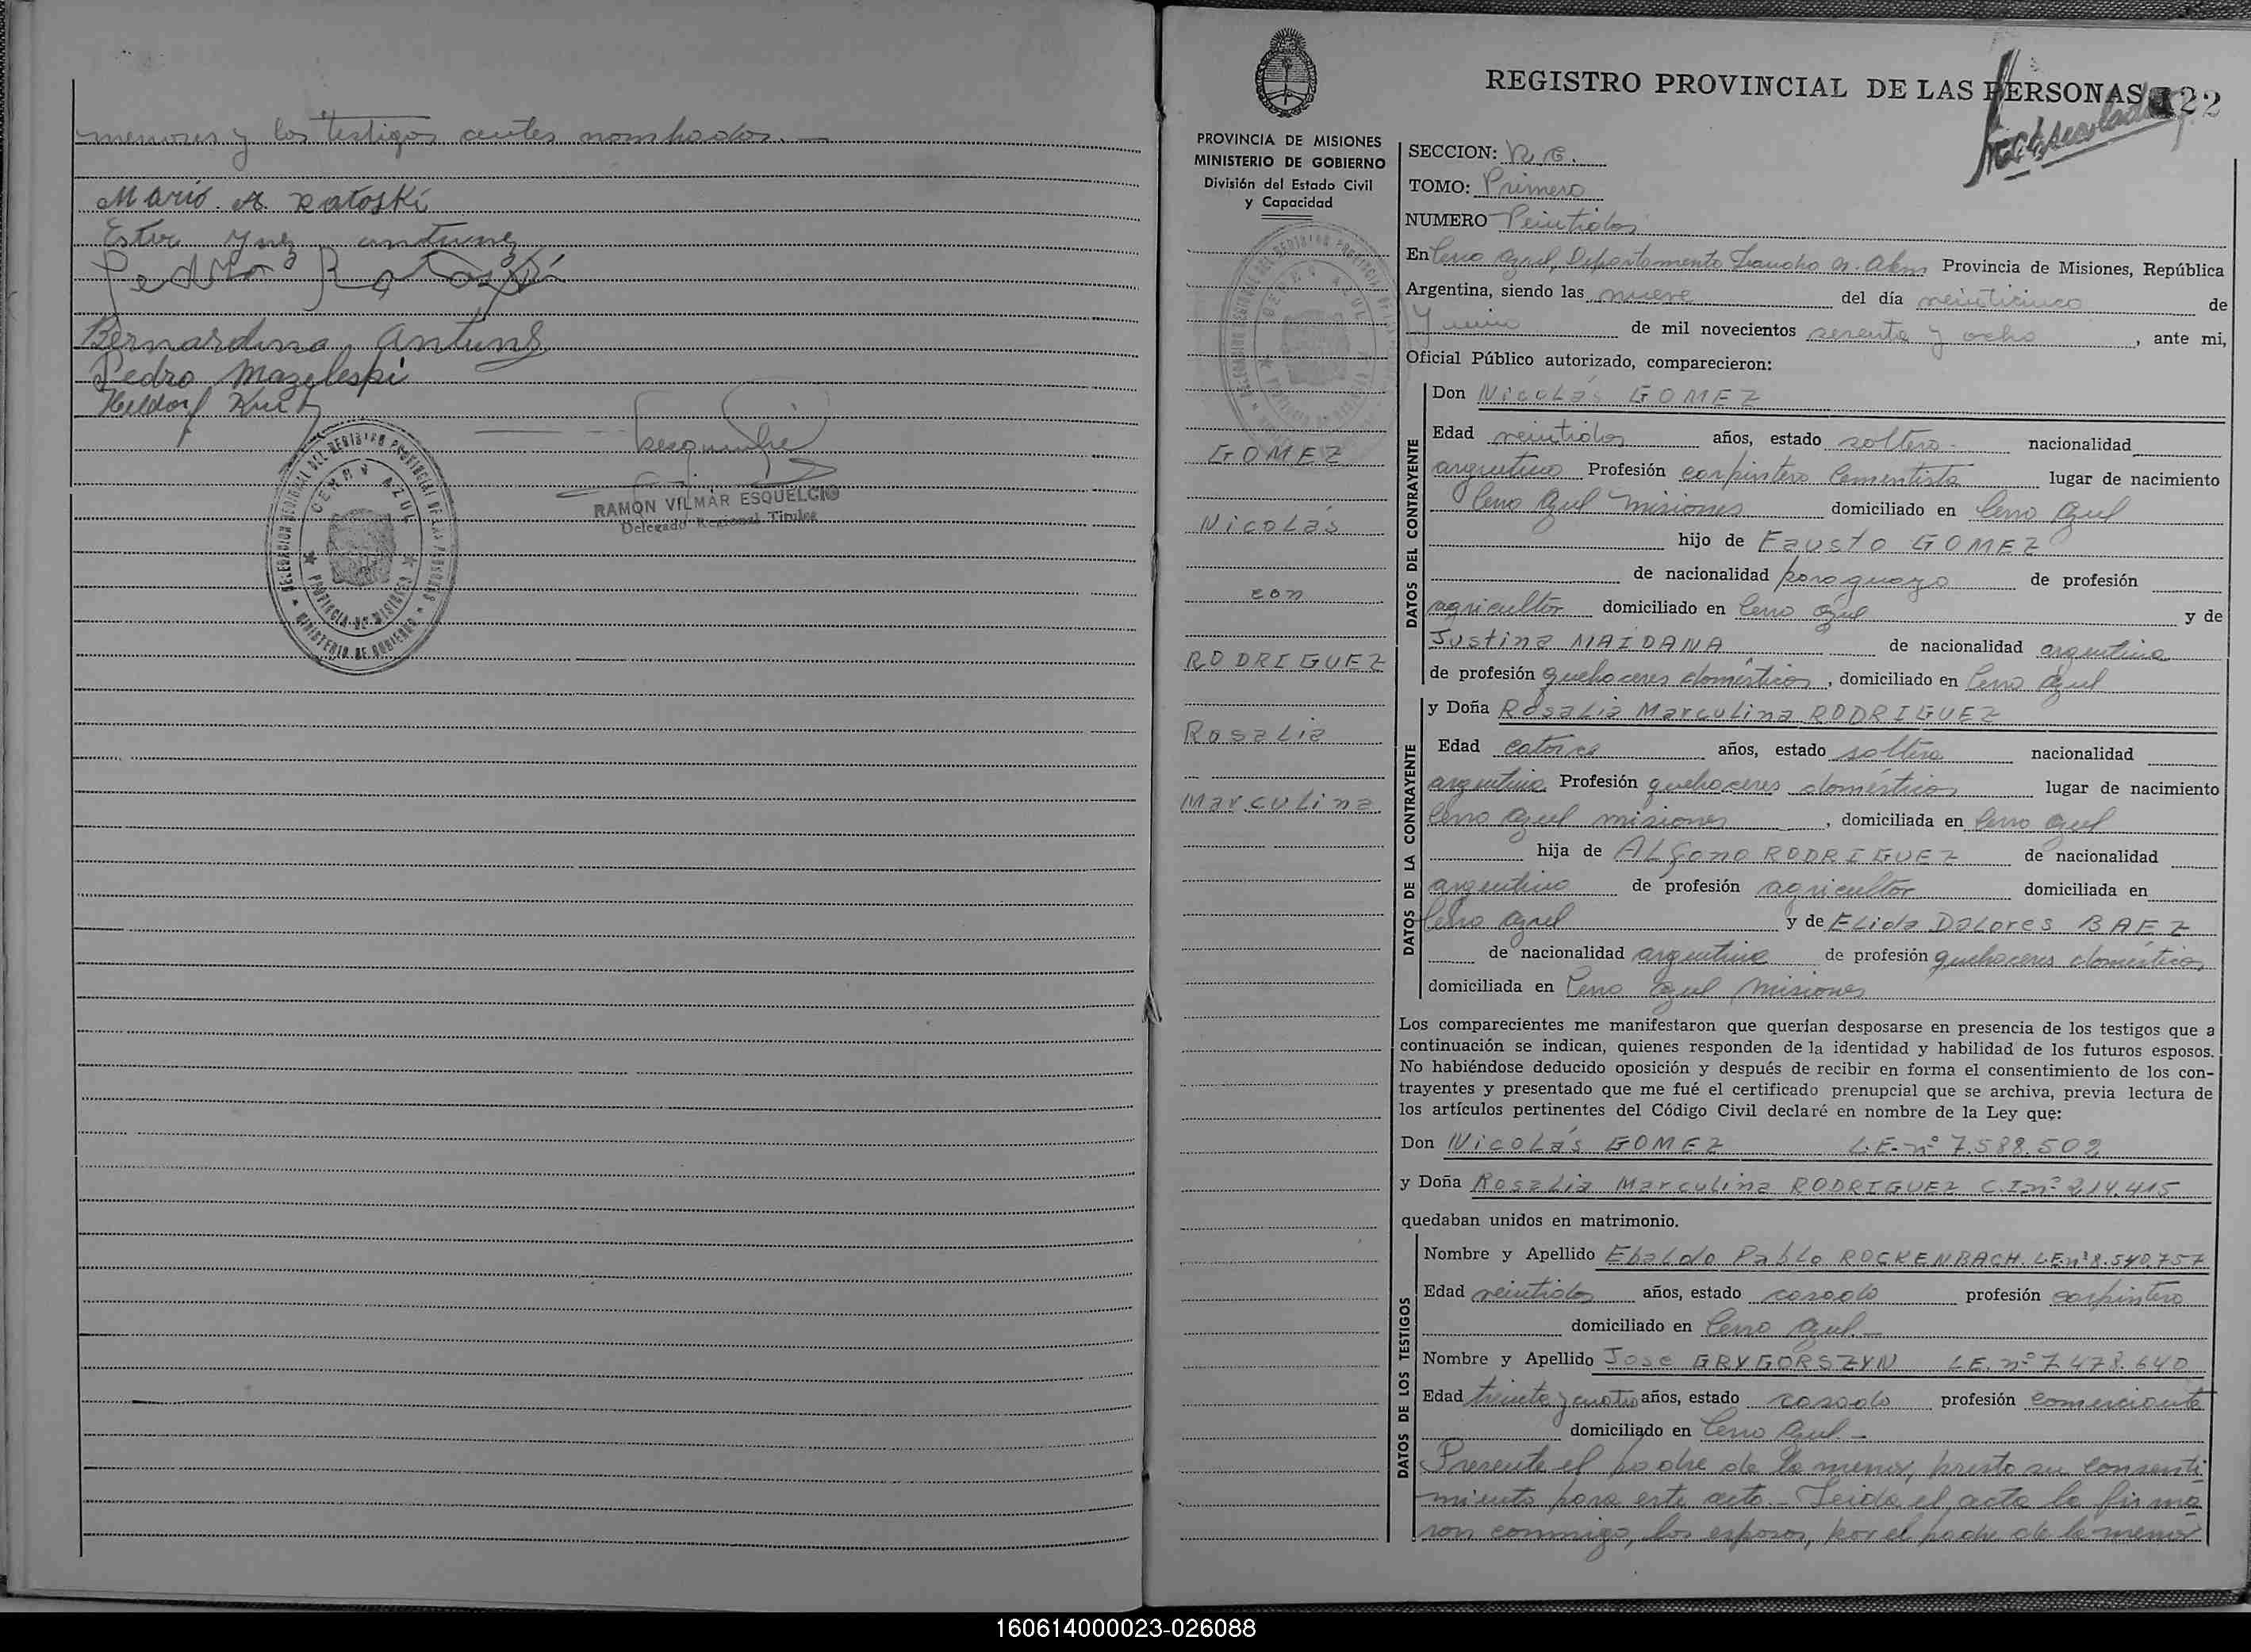 menores y los testigos antes nombrados.—
Mario. A. Ratoski
Ester Ynez antunez
Pedro Ratoski
Bernardina Antunes
Pedro Mazeleski
Heldorf Kurt
RAMON VILMAR ESQUELCIO
Delegado Regional Titular
DELEGACION REGIONAL DEL REGISTRO PROVINCIAL DE LAS PERSONAS
CERRO AZUL
PROVINCIA DE MISIONES
MINISTERIO DE GOBIERNO
REGISTRO PROVINCIAL DE LAS PERSONAS 22
PROVINCIA DE MISIONES
MINISTERIO DE GOBIERNO
División del Estado Civil
y Capacidad
GOMEZ
Nicolás
con
RODRIGUEZ
Rosalia
Marculina
SECCION:
TOMO: Primero
NUMERO Veintidos
En Cerro Azul, Departamento Leandro N. Alem Provincia de Misiones, República
Argentina, siendo las nueve del día veinticinco de
Junio de mil novecientos setenta y ocho, ante mi,
Oficial Público autorizado, comparecieron:
DATOS DEL CONTRAYENTE
Don Nicolás GOMEZ
Edad veintidos años, estado soltero nacionalidad
argentino Profesión carpintero Cementista lugar de nacimiento
Cerro Azul Misiones domiciliado en Cerro Azul
hijo de Fausto GOMEZ
de nacionalidad paraguayo de profesión
agricultor domiciliado en Cerro Azul y de
Justina MAIDANA de nacionalidad argentina
de profesión quehaceres domésticos, domiciliado en Cerro Azul
DATOS DE LA CONTRAYENTE
y Doña Rosalia Marculina RODRIGUEZ
Edad catorce años, estado soltera nacionalidad
argentina Profesión quehaceres domésticos lugar de nacimiento
Cerro Azul misiones, domiciliada en Cerro Azul
hija de RODRIGUEZ de nacionalidad
argentino de profesión agricultor domiciliada en
Cerro Azul y de Elida Dolores BAEZ
de nacionalidad argentina de profesión quehaceres domésticos
domiciliada en Cerro Azul Misiones
Los comparecientes me manifestaron que querían desposarse en presencia de los testigos que a
continuación se indican, quienes responden de la identidad y habilidad de los futuros esposos.
No habiéndose deducido oposición y después de recibir en forma el consentimiento de los con-
trayentes y presentado que me fué el certificado prenupcial que se archiva, previa lectura de
los artículos pertinentes del Código Civil declaré en nombre de la Ley que:
Don Nicolás GOMEZ L.E. nº 7.588.502
y Doña Rosalia Marculina RODRIGUEZ C.I.nº 214.415
quedaban unidos en matrimonio.
DATOS DE LOS TESTIGOS
Nombre y Apellido Ebaldo Pablo ROCKENBACH. L.E.nº 8.540757
Edad veintidos años, estado casado profesión carpintero
domiciliado en Cerro Azul.—
Nombre y Apellido Jose GRYGORSZYN L.E. nº 7.478.640
Edad treinta y cuatro años, estado casado profesión comerciante
domiciliado en Cerro Azul.—
Presente el padre de la menor, presto su consenti
miento para este acto.— Leida el acta la firma
ron conmigo, los esposos, por el padre de la menor
160614000023-026088